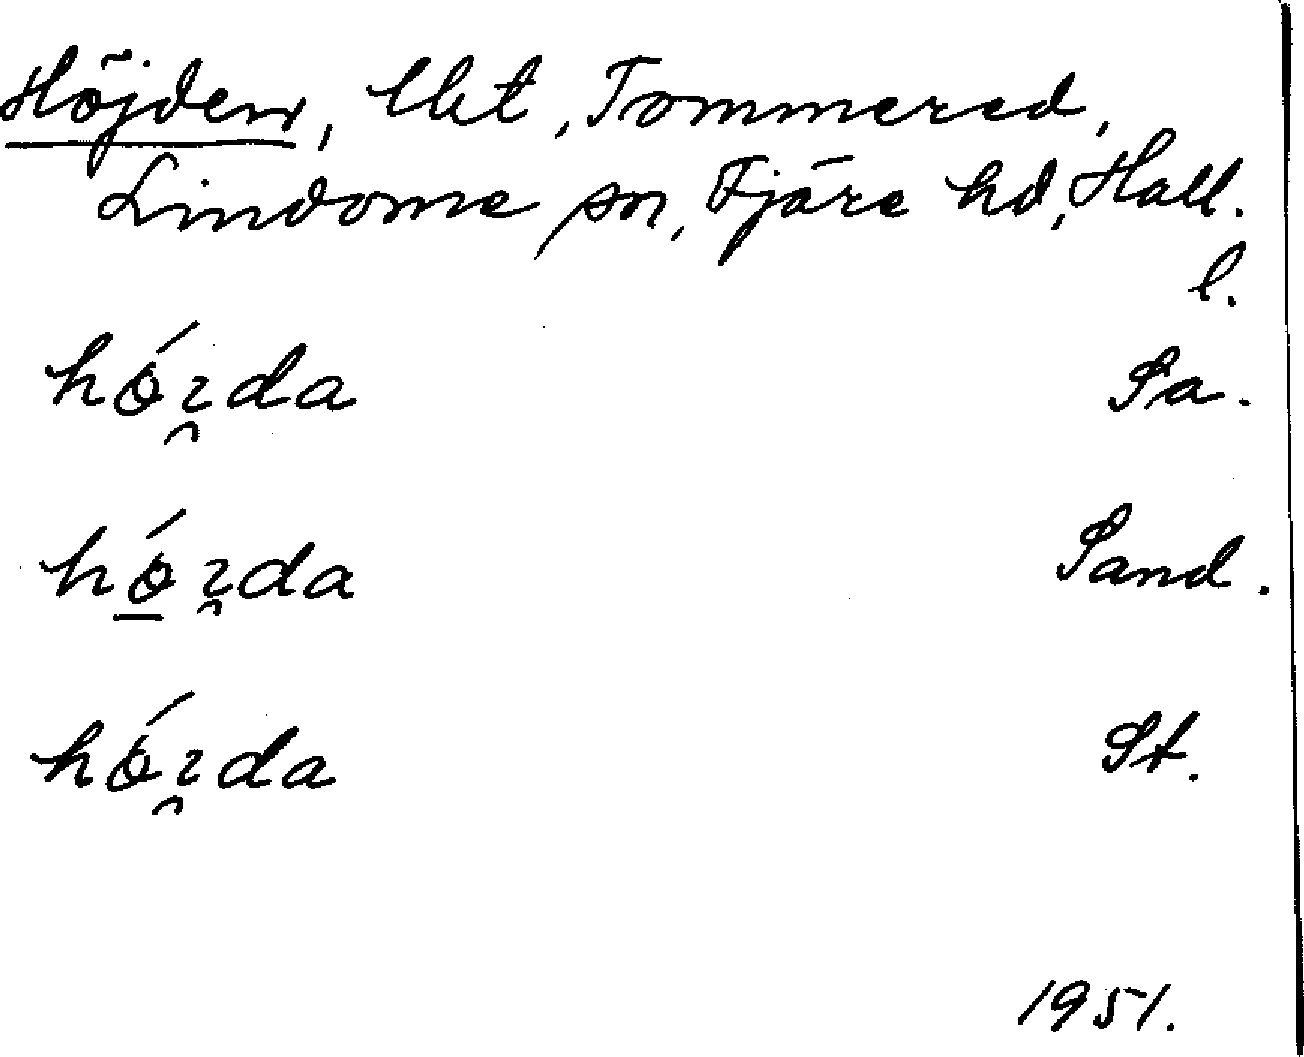 Höjden, lht, Tommered,
Lindome sn, Fjäre hd, Hall.
l.
hó̤ı̯da Sa.
hó̲ı̯da Sand.
hóı̯da St.
1951.